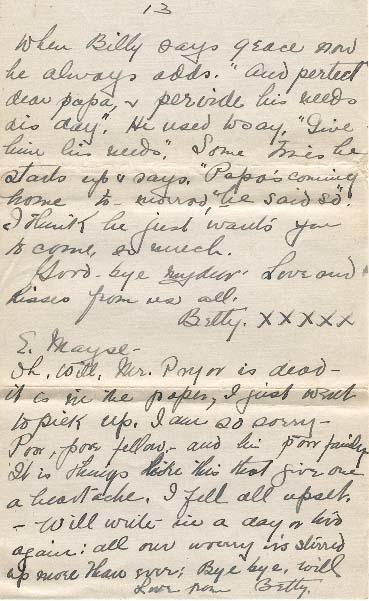 13
When Billy says grace now
he always adds. "And pertect
dear papa, & pervide his needs
dis day". He used to say, "Give
him his needs". Some times he
starts up & says, "Papa's coming
home to-morrow, he said so".
I think he just wants you
to come, so much.
Good-bye my dear. Love and
kisses from us all.
Betty. XXXXX
E. Mayse-
Oh, Will, Mr. Pryor is dead-
it is in the paper, I just went
to pick up. I am so sorry-
Poor, poor fellow,- and his poor family
It is things like this that give one
a heartache. I fell all upset.
- Will write in a day or two
again: all our worry is stirred
up more than ever; Bye bye, Will
Love from Betty.